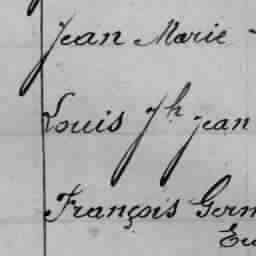 Jean Marie
Louis Jh Jean
François Germ
Eu